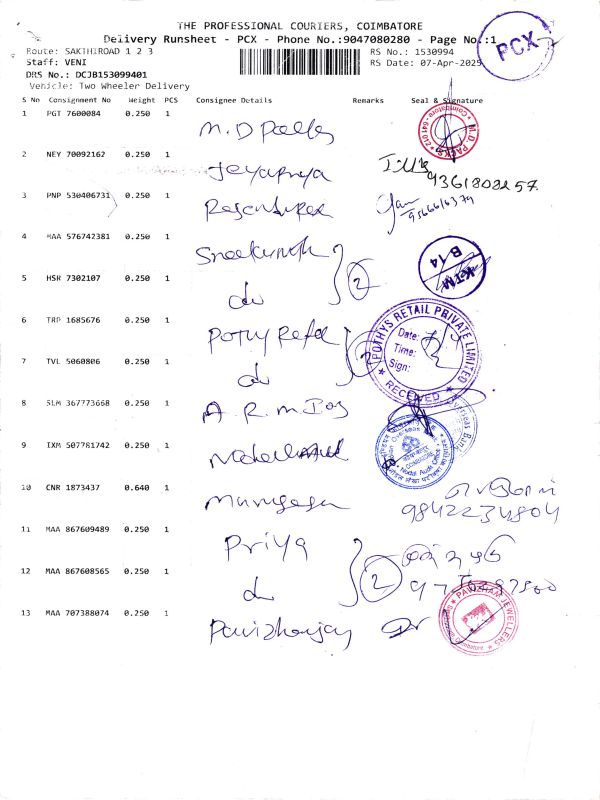 THE PROFESSIONAL COURIERS, COIMBATORE
Delivery Runsheet - PCX - Phone No.:9047080280 - Page No.:1
PCX
Route: SAKTHIROAD 1 2 3
RS No.: 1530994
Staff: VENI
RS Date: 07-Apr-2025
DRS No.: DCJB153099401
Vehicle: Two Wheeler Delivery
S No Consignment No Weight PCS Consignee Details Remarks Seal & Signature
1 PGT 7600084 0.250 1 M.D Packs
M.D. PACKS
2 NEY 70092162 0.250 1 Jeyapriya
3 PNP 530406731 0.250 1
4 MAA 576742381 0.250 1
KTM
B-14
5 HSR 7302107 0.250 1 do 2
6 TRP 1685676 0.250 1 Pothy Retail
POTHYS RETAIL PRIVATE LIMITED
Date:
Time:
Sign:
RECEIVED
7 TVL 5060806 0.250 1 do 2
8 SLM 367773668 0.250 1 A.R.M
9 IXM 507781742 0.250 1
10 CNR 1873437 0.640 1 Murugesan
9842234804
11 MAA 867609489 0.250 1 Priya
12 MAA 867608565 0.250 1 do 2
13 MAA 707388074 0.250 1
PAVIZHAM JEWELLERS